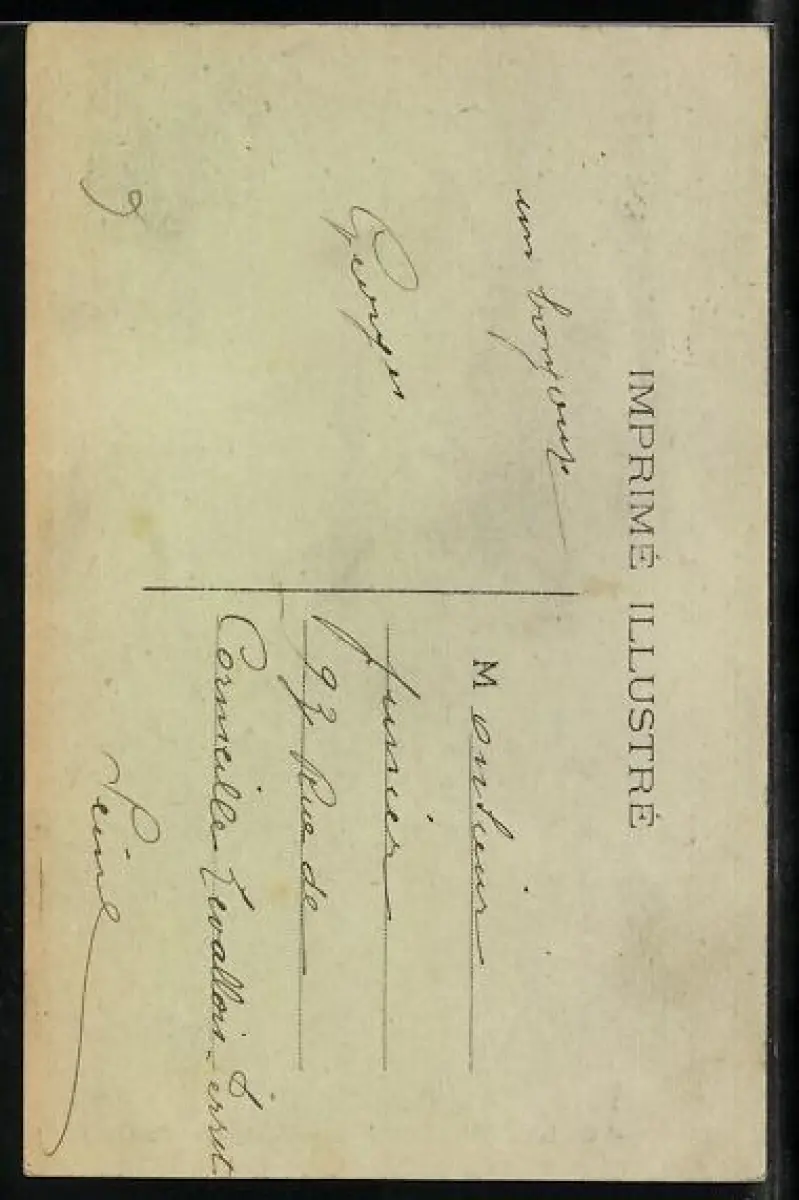 IMPRIMÉ ILLUSTRÉ
un bonjour
Georges
Monsieur
Junier
93 Rue de
Cormeille Levallois-Perret
Seine
9